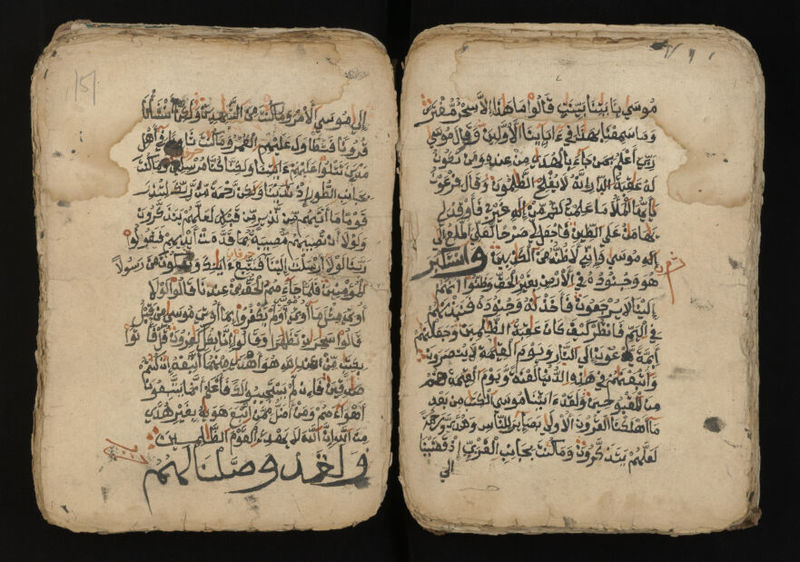 موسى بايتنا بينت قالوا ما هذا إلا سحر مفترى
وما سمعنا بهذا في ءابائنا الأولين وقال موسى
ربي أعلم بمن جاء بالهدى من عنده ومن تكون
له عقبة الدار إنه لا يفلح الظلمون وقال فرعون
يأيها الملأ ما علمت لكم من إله غيري فأوقد لي
يهامن على الطين فاجعل لي صرحا لعلي أطلع إلى
إله موسى وإني لأظنه من الكذبين واستكبر
هو وجنوده في الأرض بغير الحق وظنوا أنهم
إلينا لا يرجعون فأخذنه وجنوده فنبذنهم
في اليم فانظر كيف كان عقبة الظلمين وجعلنهم
أيمة يدعون إلى النار ويوم القيمة لا ينصرون
وأتبعنهم في هذه الدنيا لعنة ويوم القيمة هم
من المقبوحين ولقد ءاتينا موسى الكتب من بعد
ما أهلكنا القرون الأولى بصائر للناس وهدى ورحمة
لعلهم يتذكرون وما كنت بجانب الغربي إذ قضينا
إلى
إلى موسى الأمر وما كنت من الشهدين ولكنا أنشأنا
قرونا فتطاول عليهم العمر وما كنت ثاويا في أهل
مدين تتلوا عليهم ءايتنا ولكنا كنا مرسلين وما كنت
بجانب الطور إذ نادينا ولكن رحمة من ربك لتنذر
قوما ما أتيهم من نذير من قبلك لعلهم يتذكرون
ولولا أن تصيبهم مصيبة بما قدمت أيديهم فيقولوا
ربنا لولا أرسلت إلينا فنتبع ءايتك ونكون من رسولا
المؤمنين فلما جاءهم الحق من عندنا قالوا لولا
أوتي مثل ما أوتي موسى أولم يكفروا بما أوتي موسى من قبل
قالوا سحران تظهرا وقالوا إنا بكل كفرون قل فأتوا
بكتب من عند الله هو أهدى منهما أتبعه إن كنتم
صدقين فإن لم يستجيبوا لك فاعلم أنما يتبعون
أهواءهم ومن أضل ممن اتبع هويه بغير هدى
من الله إن الله لا يهدي القوم الظلمين
ولقد وصلنا لهم